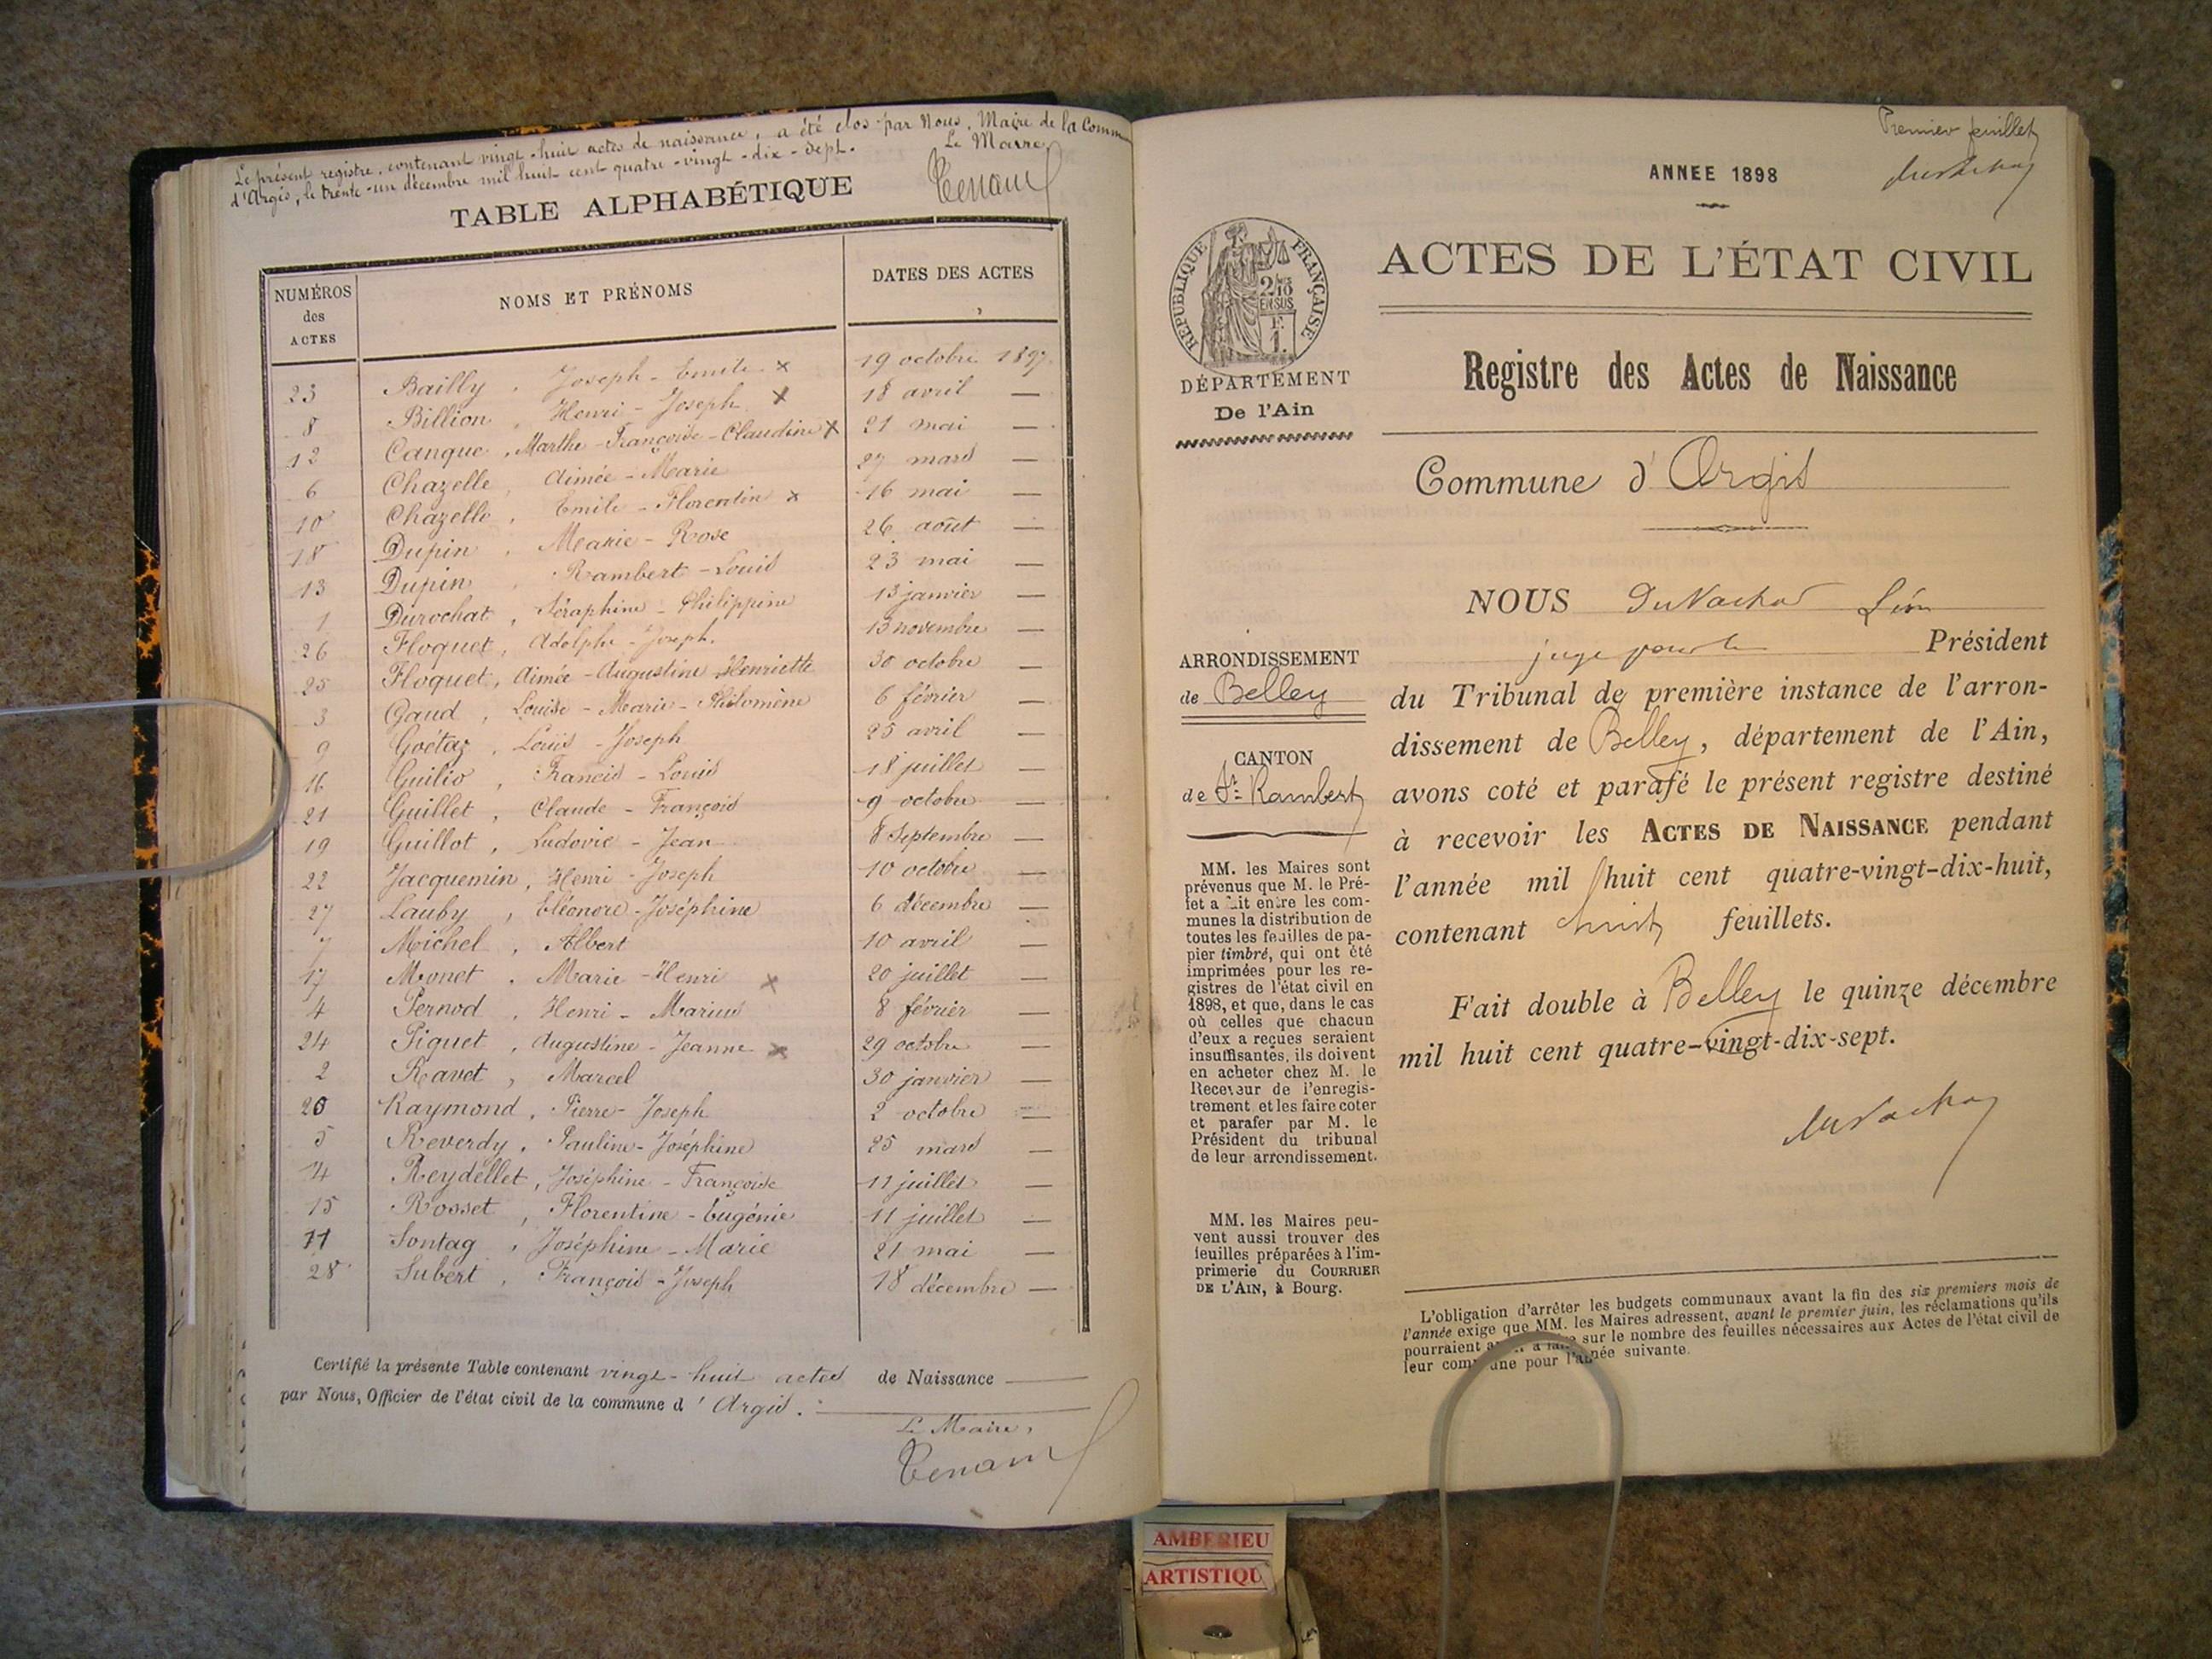 Le présent registre, contenant vingt-huit actes de naissance, a été clos par Nous, Maire de la Comm
d'Argis, le trente-un décembre mil huit cent quatre-vingt-dix-sept.
Le Maire
TABLE ALPHABÉTIQUE
NUMÉROS des ACTES NOMS ET PRÉNOMS DATES DES ACTES
23 Bailly, Joseph-Emile x 19 octobre 1897
8 Billion, Henri-Joseph x 18 avril —
12 Canque, Marthe-Françoise-Claudine x 21 mai —
6 Chazelle, Aimée-Marie 27 mars —
10 Chazelle, Emile-Florentin x 16 mai —
18 Dupin, Marie-Rose 26 août —
13 Dupin, Rambert-Louis 23 mai —
1 Durochat, Séraphine-Philippine 13 janvier —
26 Floquet, Adolphe-Joseph. 13 novembre —
25 Floquet, Aimée-Augustine Henriette 30 octobre —
3 Gaud, Louise-Marie-Philomène 6 février —
9 Goëtaz, Louis-Joseph 25 avril —
16 Guilio, Francis-Louis 18 juillet —
21 Guillet, Claude-François 9 octobre —
19 Guillot, Ludovic-Jean 8 Septembre —
22 Jacquemin, Henri-Joseph 10 octobre —
27 Lauby, Eléonore-Joséphine 6 décembre —
7 Michel, Albert 10 avril —
17 Monet, Marie-Henri x 20 juillet —
4 Pernod, Henri-Marius 8 février —
24 Piquet, Augustine-Jeanne x 29 octobre —
2 Ravet, Marcel 30 janvier —
20 Raymond, Pierre-Joseph 2 octobre —
5 Reverdy, Pauline-Joséphine 25 mars —
14 Reydellet, Joséphine-Françoise 11 juillet —
15 Rosset, Florentine-Eugénie 11 juillet —
11 Sontag, Joséphine-Marie 21 mai —
28 Subert, François-Joseph 18 décembre —
Certifié la présente Table contenant vingt-huit actes de Naissance
par Nous, Officier de l'état civil de la commune d'Argis.
Le Maire,
Premier feuillet
ANNEE 1898
RÉPUBLIQUE FRANÇAISE
2/10 EN SUS
F. 1.
DÉPARTEMENT
De l'Ain
ACTES DE L'ÉTAT CIVIL
Registre des Actes de Naissance
Commune d'Argis
ARRONDISSEMENT
de Belley
CANTON
de St Rambert
MM. les Maires sont
prévenus que M. le Pré-
fet a fait entre les com-
munes la distribution de
toutes les feuilles de pa-
pier timbré, qui ont été
imprimées pour les re-
gistres de l'état civil en
1898, et que, dans le cas
où celles que chacun
d'eux a reçues seraient
insuffisantes, ils doivent
en acheter chez M. le
Receveur de l'enregis-
trement et les faire coter
et parafer par M. le
Président du tribunal
de leur arrondissement.
MM. les Maires peu-
vent aussi trouver des
feuilles préparées à l'im-
primerie du COURRIER
DE L'AIN, à Bourg.
NOUS
Président
du Tribunal de première instance de l'arron-
dissement de Belley, département de l'Ain,
avons coté et parafé le présent registre destiné
à recevoir les ACTES DE NAISSANCE pendant
l'année mil huit cent quatre-vingt-dix-huit,
contenant feuillets.
Fait double à Belley le quinze décembre
mil huit cent quatre-vingt-dix-sept.
L'obligation d'arrêter les budgets communaux avant la fin des six premiers mois de
l'année exige que MM. les Maires adressent, avant le premier juin, les réclamations qu'ils
pourraient sur le nombre des feuilles nécessaires aux Actes de l'état civil de
leur commune pour l'année suivante.
AMBERIEU
ARTISTIQU